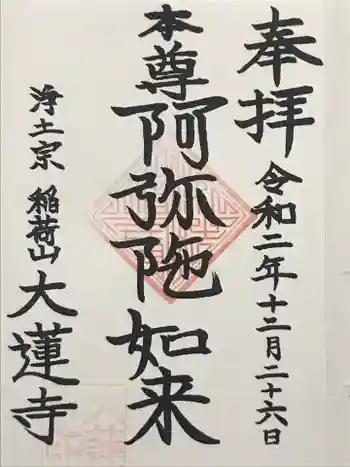 奉拝
令和二年十二月二十六日
本尊
阿弥陀如来
浄土宗
稲荷山
大蓮寺